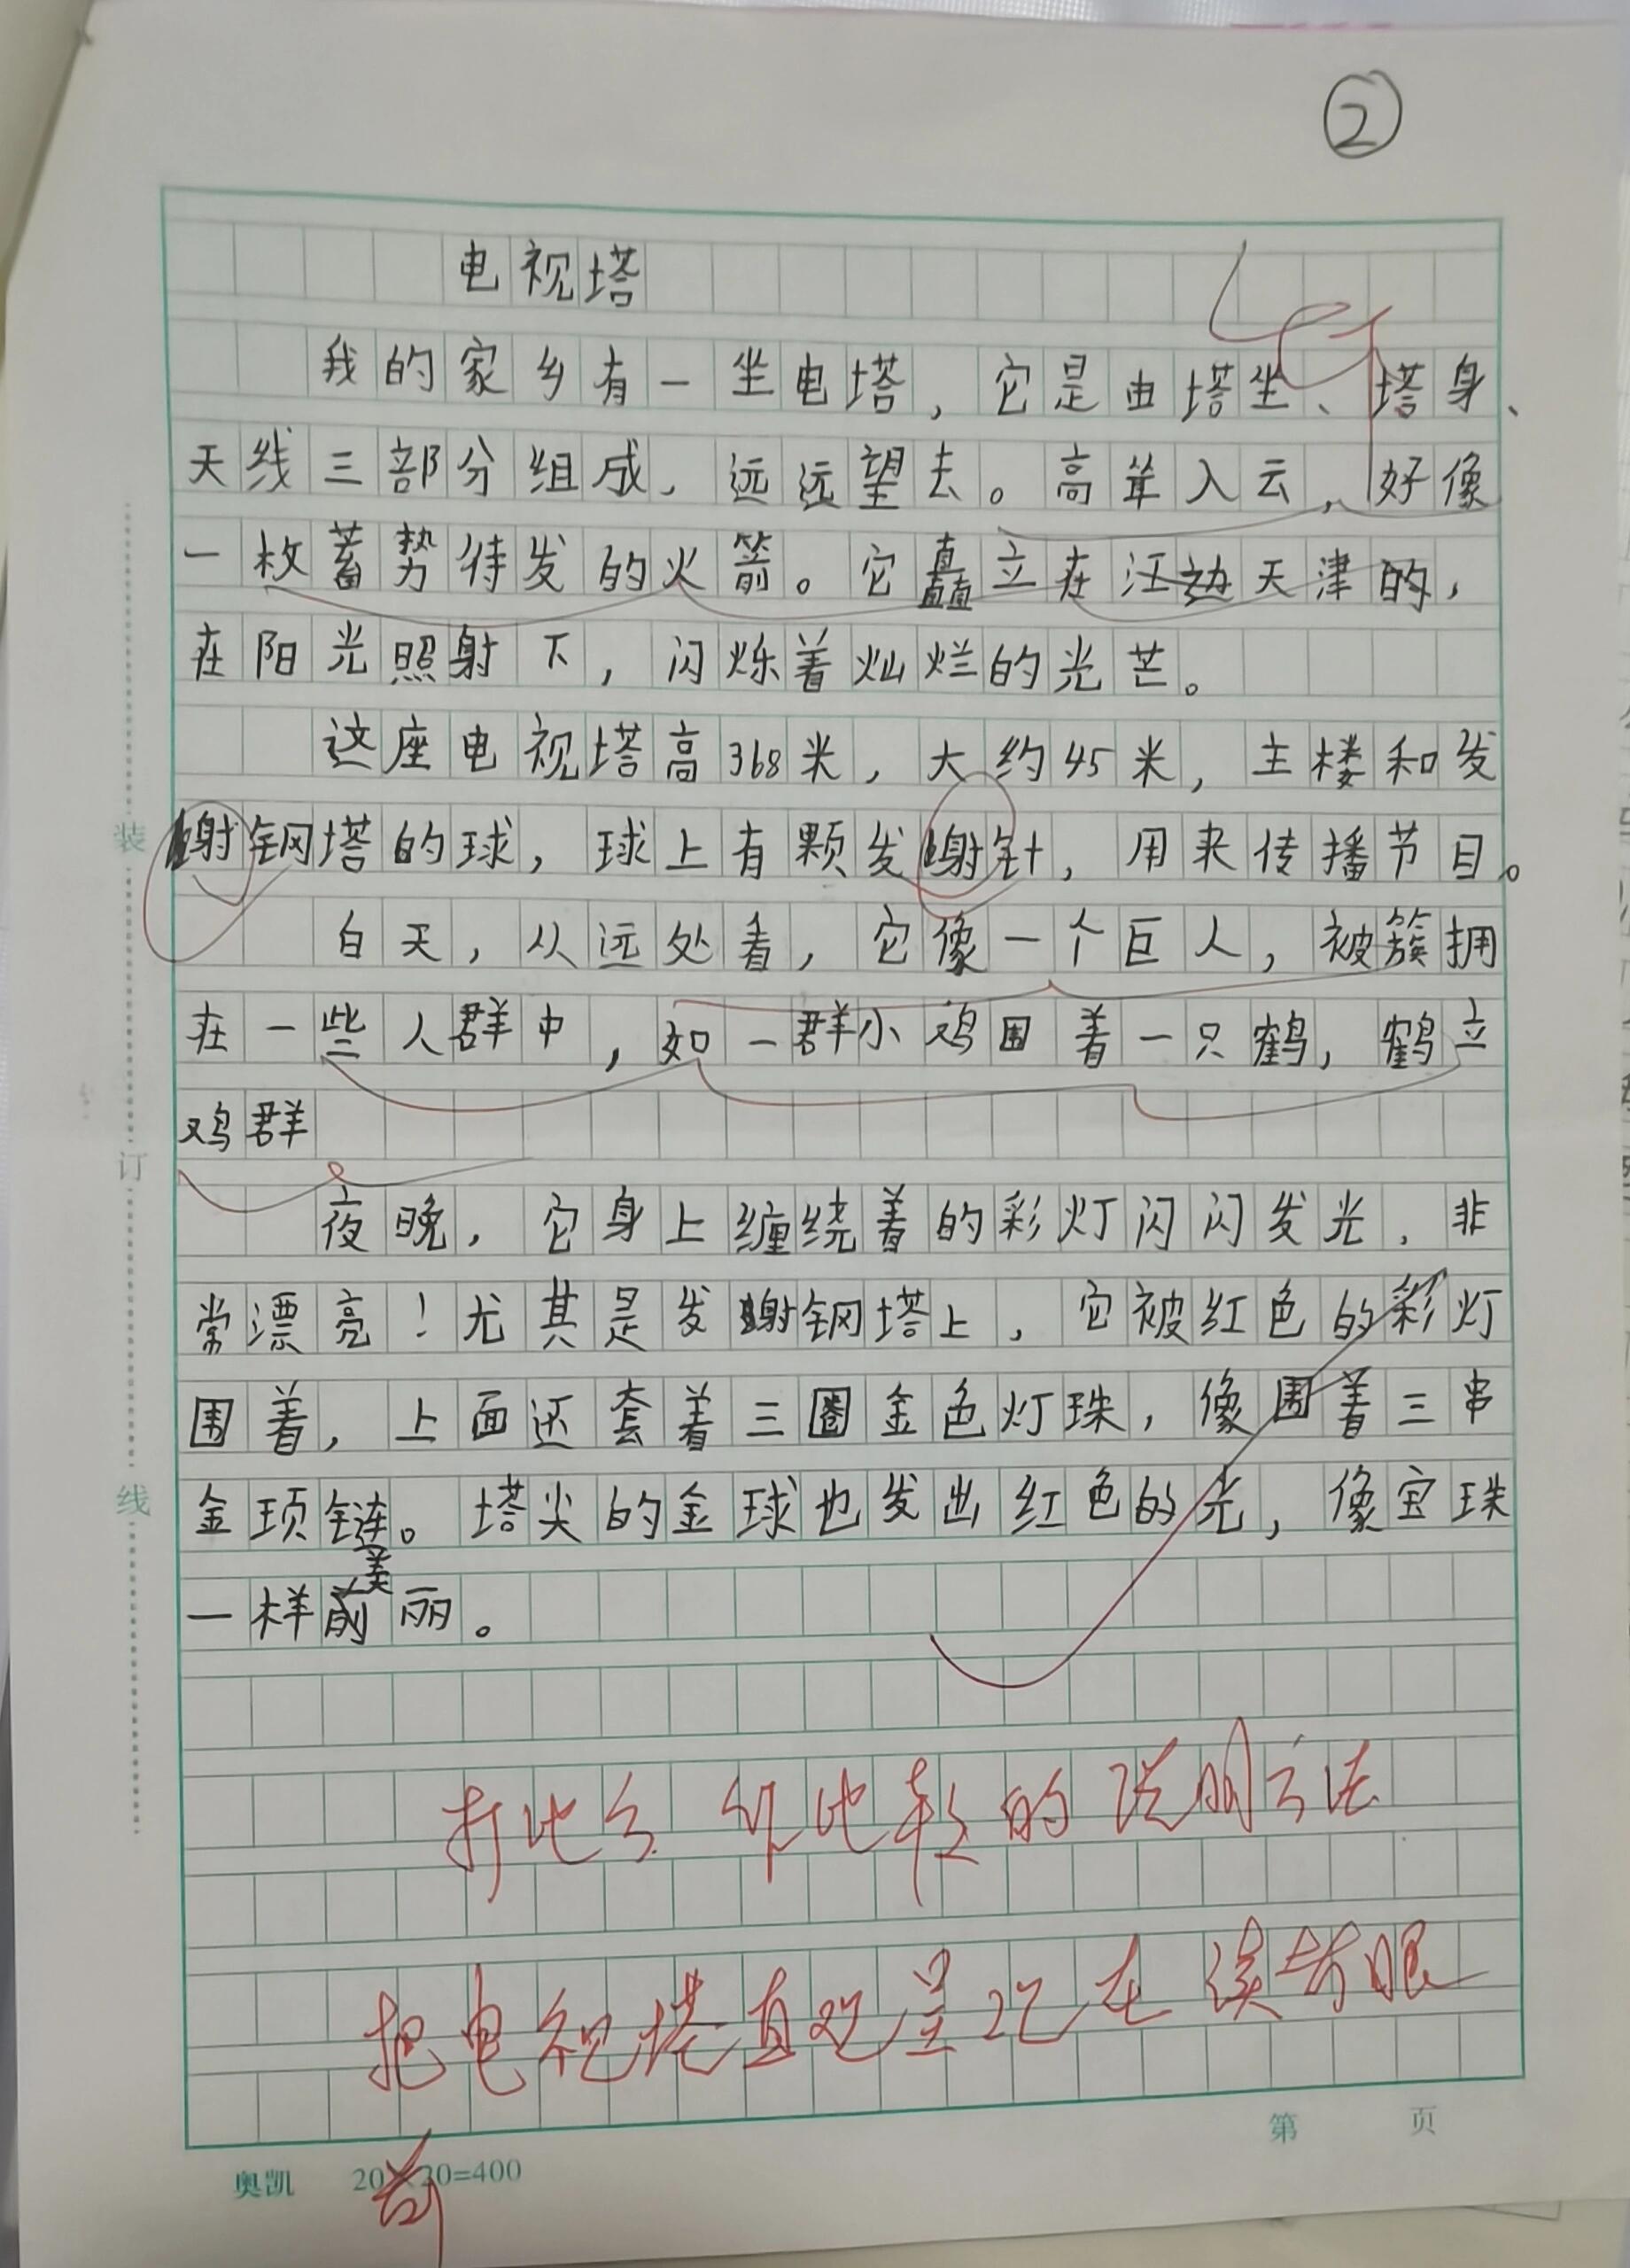 ②
电视塔
我的家乡有一坐电塔，它是由塔坐、塔身、
天线三部分组成，远远望去。高耸入云，好像
一枚蓄势待发的火箭。它矗立在江边天津的，
在阳光照射下，闪烁着灿烂的光芒。
这座电视塔高368米，大约45米，主楼和发
射钢塔的球，球上有颗发射针，用来传播节目。
白天，从远处看，它像一个巨人，被簇拥
在一些人群中，如一群小鸡围着一只鹤，鹤立
鸡群
夜晚，它身上缠绕着的彩灯闪闪发光，非
常漂亮！尤其是发射钢塔上，它被红色的彩灯
围着，上面还套着三圈金色灯珠，像围着三串
金项链。塔尖的金球也发出红色的光，像宝珠
一样美丽。
打比方 作比较的说明方法
把电视塔直观呈现在读者眼
前
装
订
线
第 页
奥凯 20×20=400